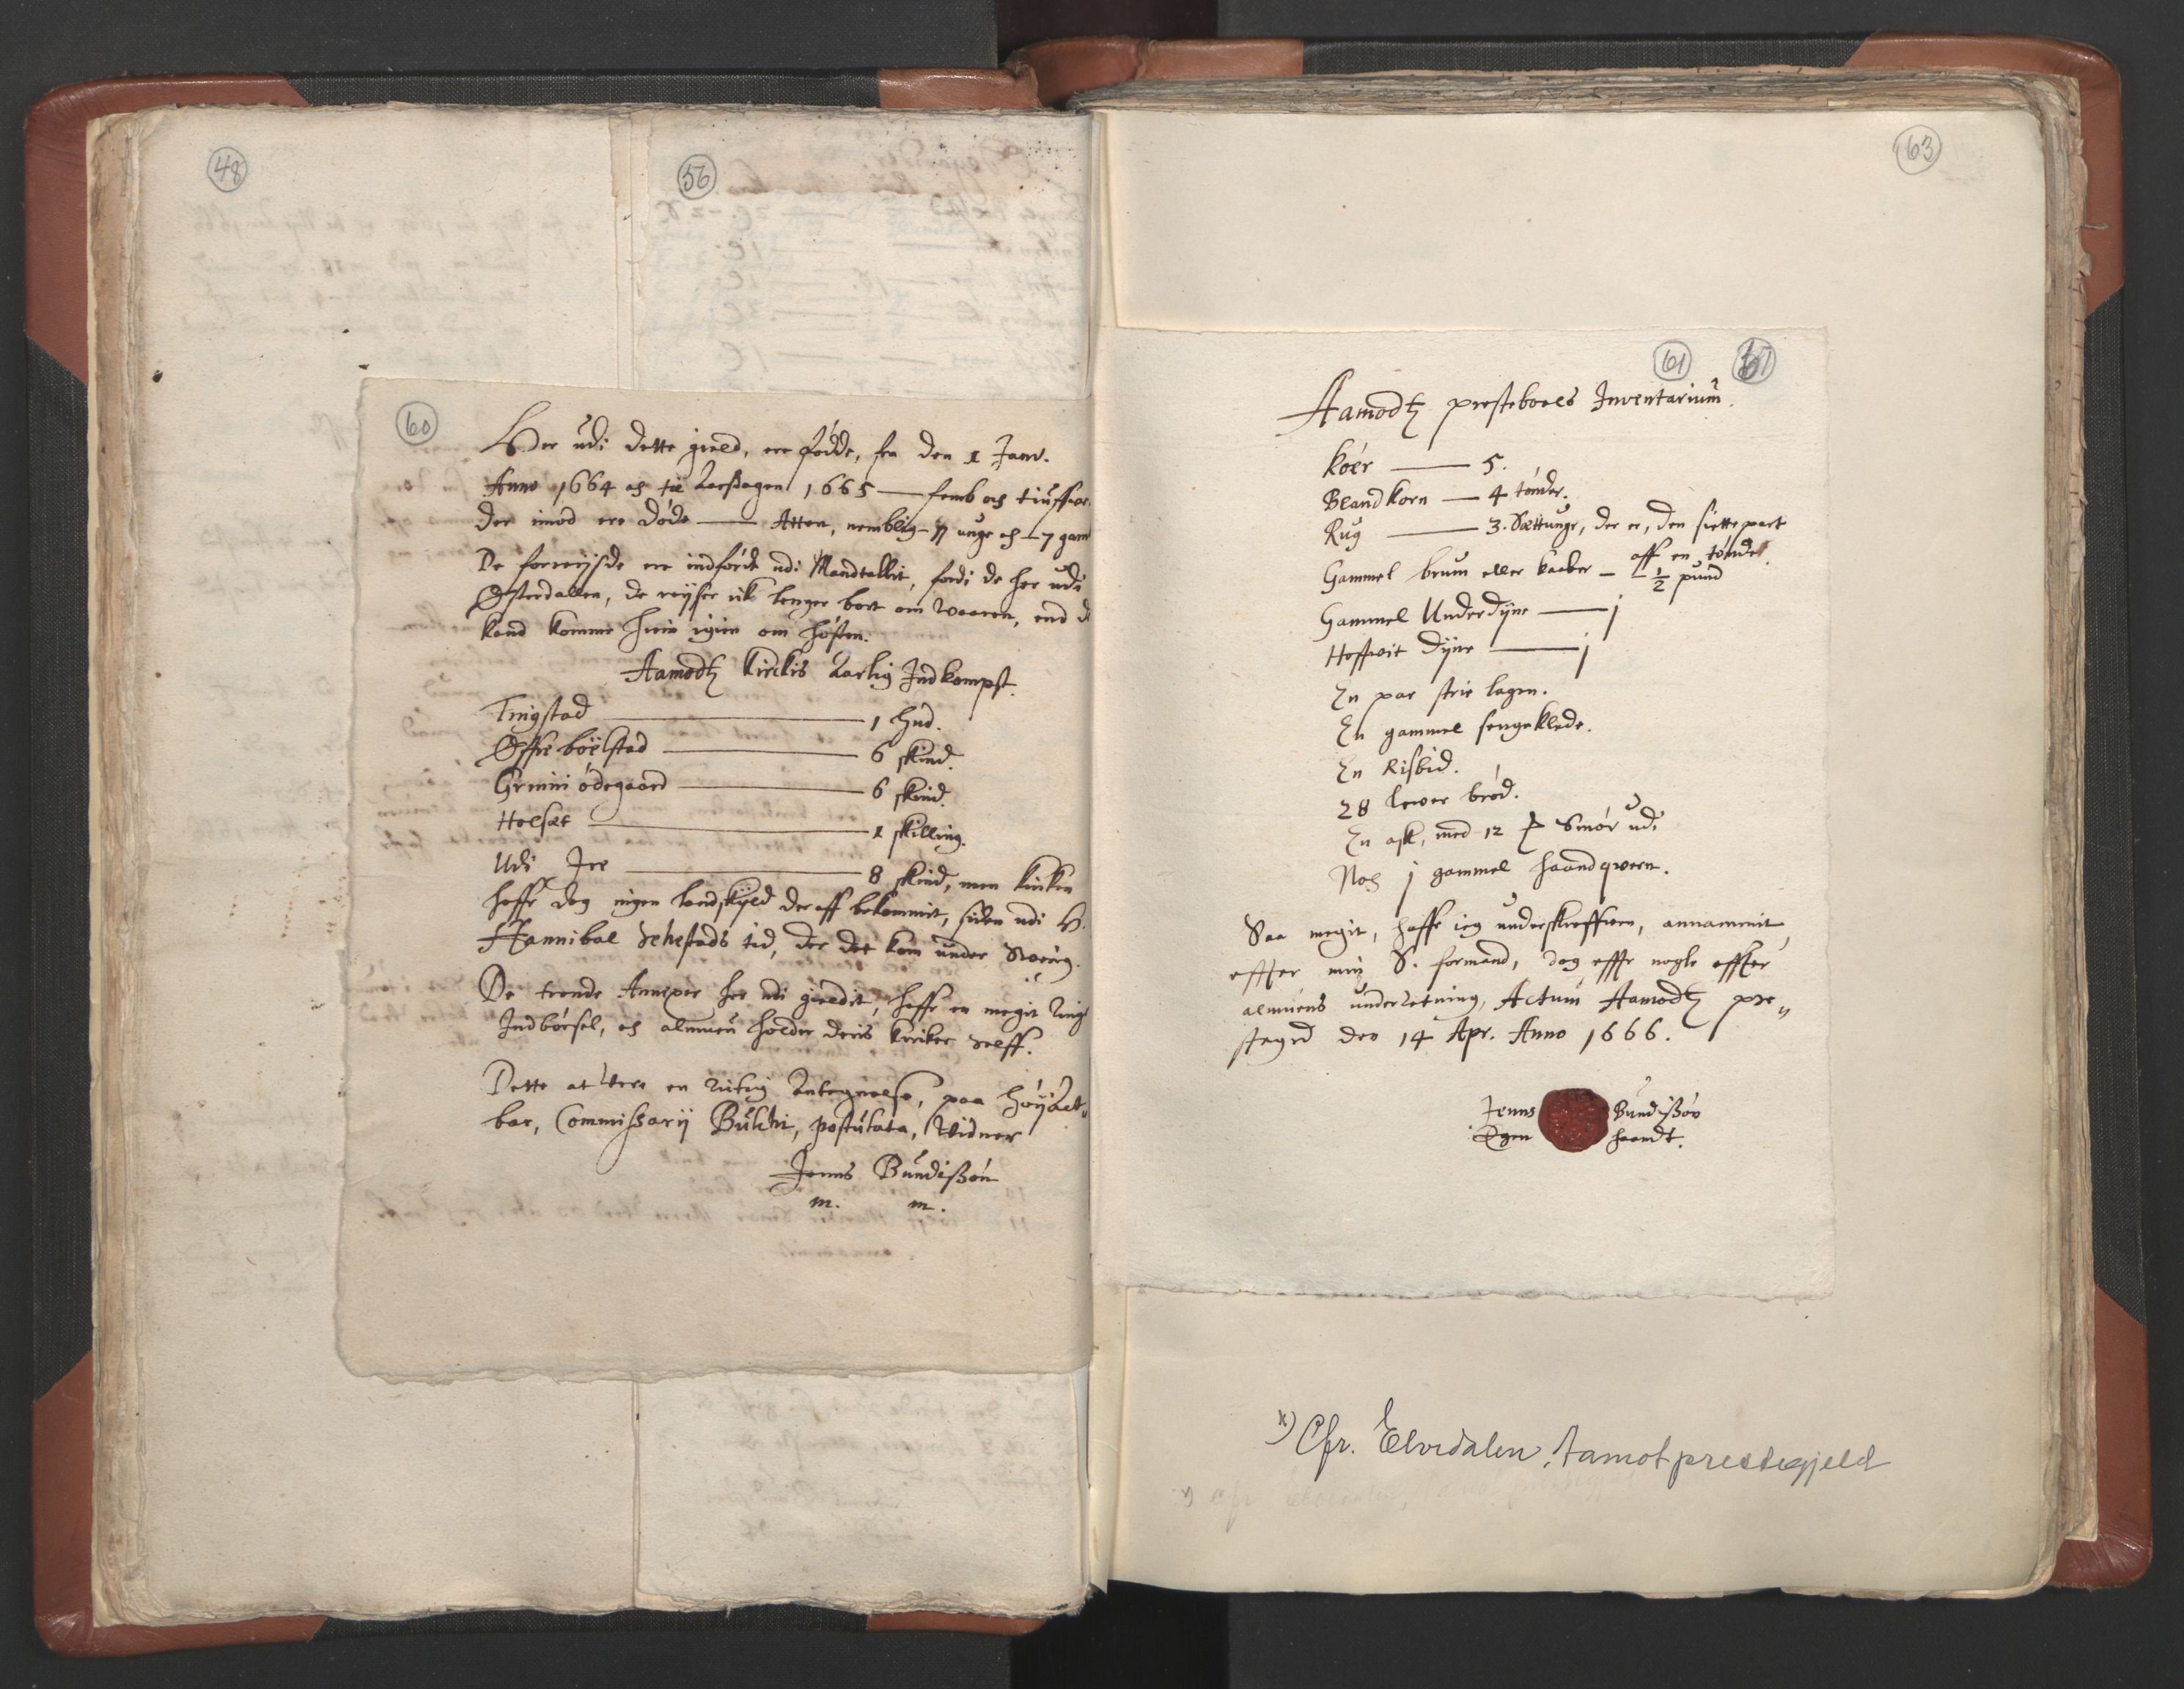 48
56
60
Her udi dette gield, ere födde, fra den 1 Janv.
Anno 1664 och til Aarsdagen 1665 — femb och tiuffve
der imod ere döde — Atten, nemblig 11 unge och 7 gam
De forreijsde ere indförde udi Mandtallit, fordi de her udi
Østerdallen, de reijser ick lenger bort om Vaaren, end de
kand komme hiem igien om hösten.
Aamodtz Kirckis Aarlig Indkompst.
Tingstad — 1 hud.
Øffre böelstad — 6 skind.
Grinni ödegaard — 6 skind.
Holset — 1 skilling.
Udi Jre — 8 skind, men kircken
haffr dog ingen landskyld der aff bekommit, siden udi H.
Hannibal Sehesteds tid, der det kom under Sverig.
De trende Annexer her udi gieldit, haffr en megit Ring
Indbörsel, och almuen holder deris kircker self.
Dette at Vere en Rictig Antegnelse, paa höyact-
bar, Commissarij postulata, Vidner
Jenns Bundissön
m. m.
63
61
Aamodtz prestebools Inventarium.
Köer — 5.
Blandkorn — 4 tönder.
Rug — 3. Settunge, der er, den siette part
aff en tönde.
Gammel brum eller kaaber — 1/2 pund
Gammel Underdyne — j
Hoffvit dyne — j
En par strie lagen.
En gammel sengeklede.
En Risbid.
28 lever bröd.
En ask, med 12 Smör udi
Noch j gammel haandqvern.
Saa megit, haffr ieg underskreffven, annammit
effter min S. formand, dog effter nogle effter
almuens underretning, Actum Aamodtz pre-
stegrd den 14 Apr. Anno 1666.
Jenns Bundissön
Egen haandt.
x) Cfr. Elvedalen, Aamot prestegjeld